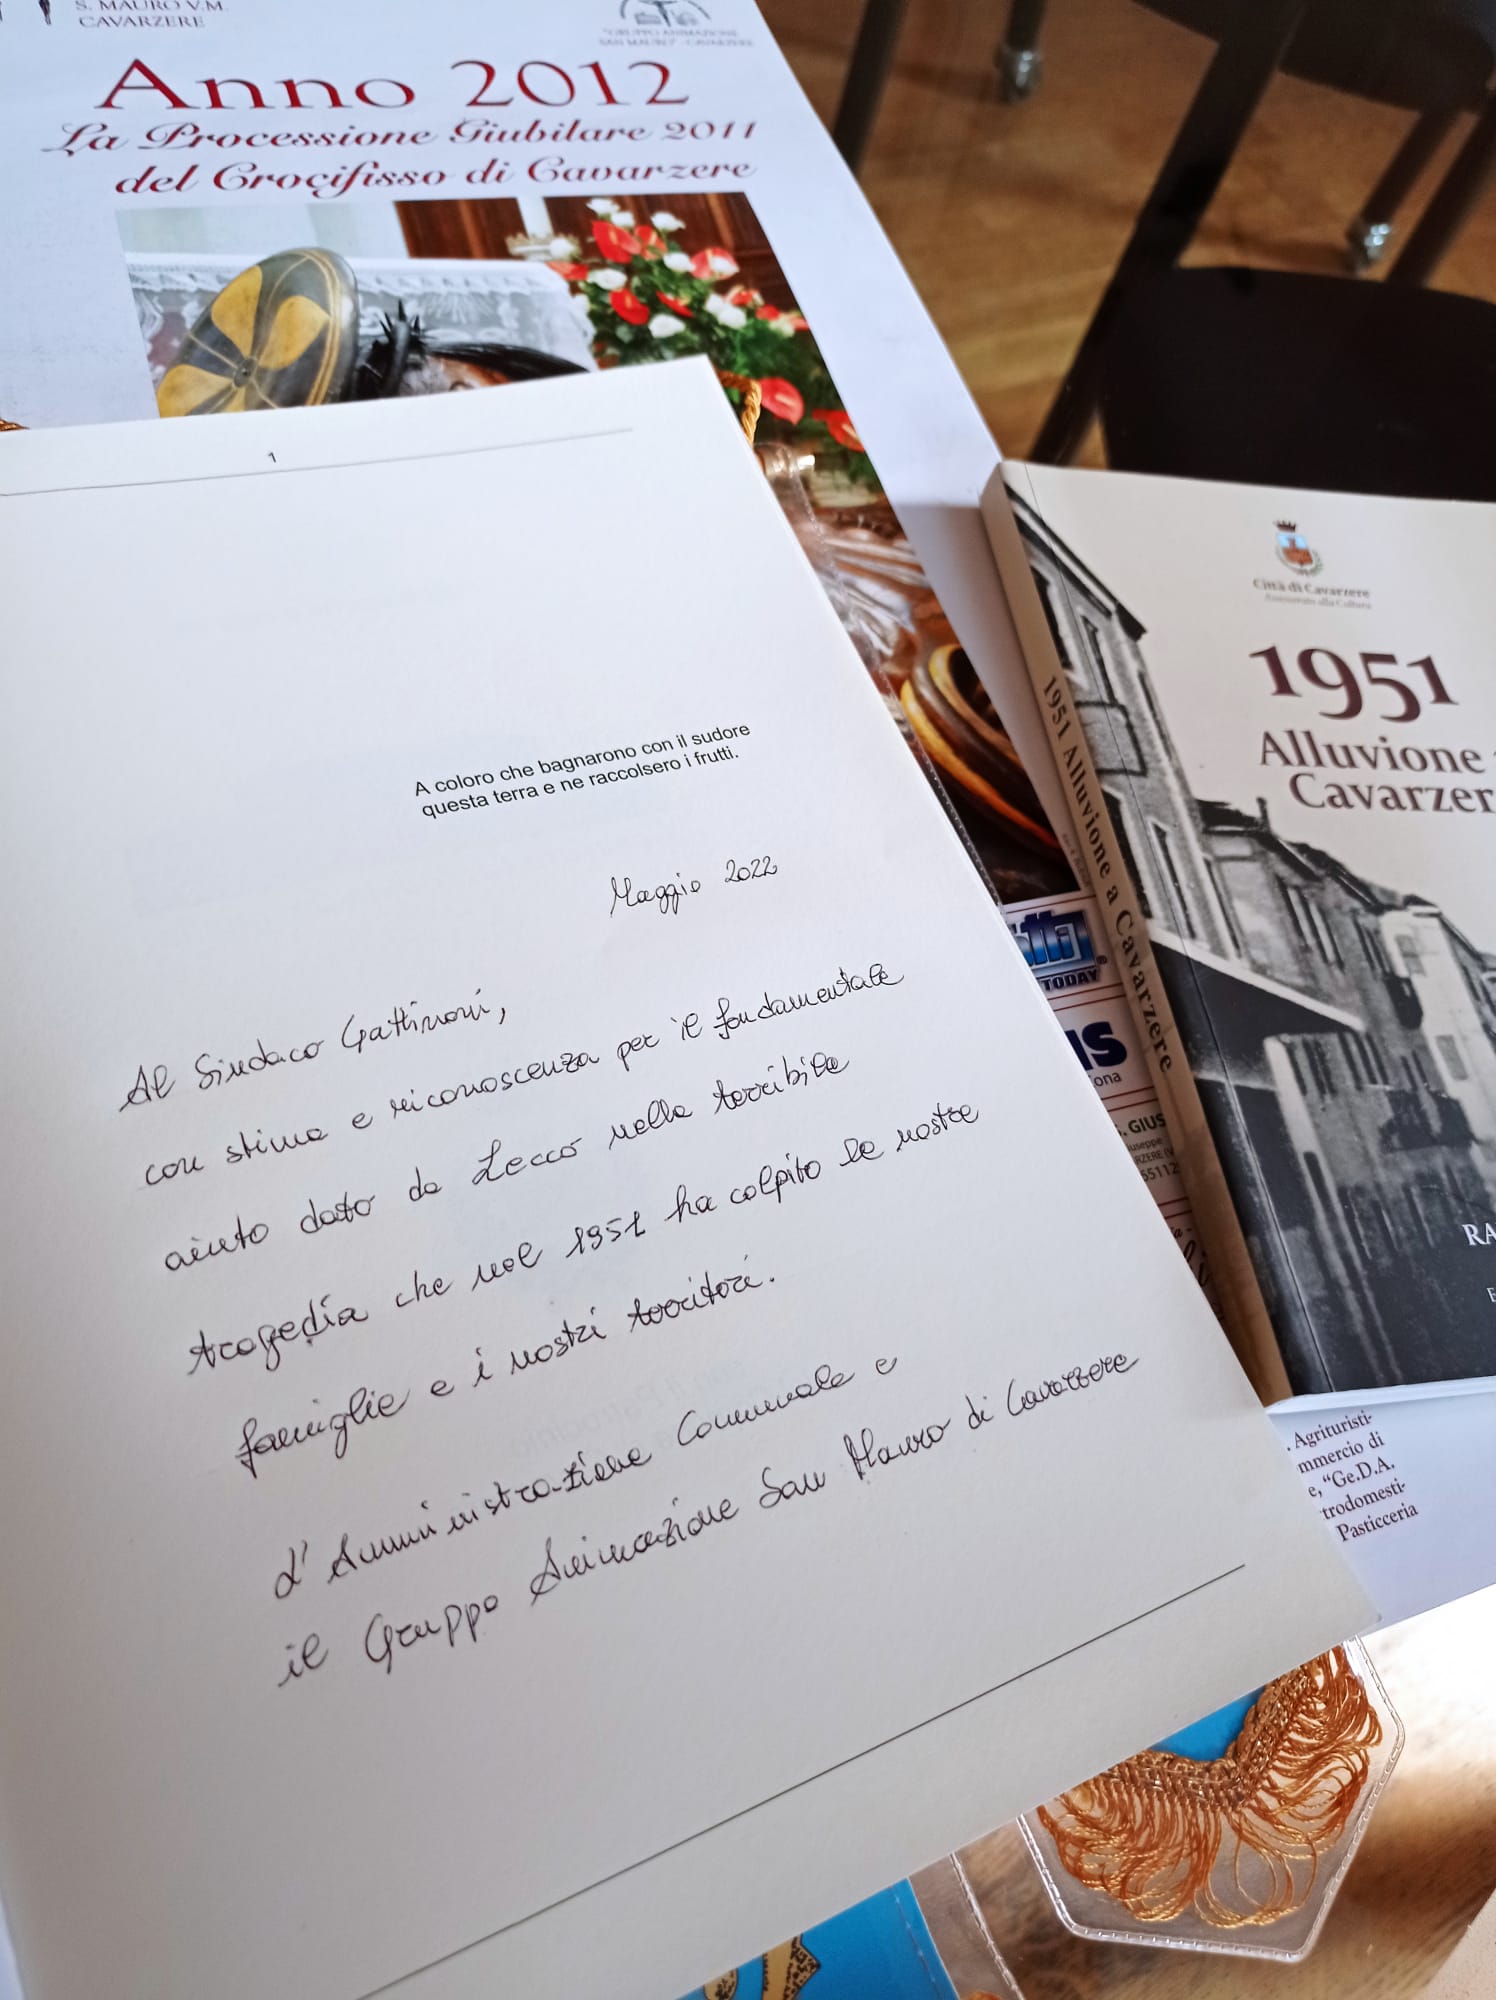 S. MAURO V.M.
CAVARZERE
"GRUPPO ANIMAZIONE
SAN MAURO" - CAVARZERE
Anno 2012
La Processione Giubilare 2011
del Crocifisso di Cavarzere
1
A coloro che bagnarono con il sudore
questa terra e ne raccolsero i frutti.
Maggio 2022
Al Sindaco Gattinoni,
con stima e riconoscenza per il fondamentale
aiuto dato da Lecco nella terribile
tragedia che nel 1951 ha colpito le nostre
famiglie e i nostri territori.
L'Amministrazione Comunale e
il Gruppo Animazione San Mauro di Cavarzere
Città di Cavarzere
Assessorato alla Cultura
1951
Alluvione
Cavarzer
1951 Alluvione a Cavarzere
RA
TODAY
ona
. GIUS
iuseppe
RZERE (V
5112
. Agrituristi-
mmercio di
e, "Ge.D.A.
trodomesti-
Pasticceria